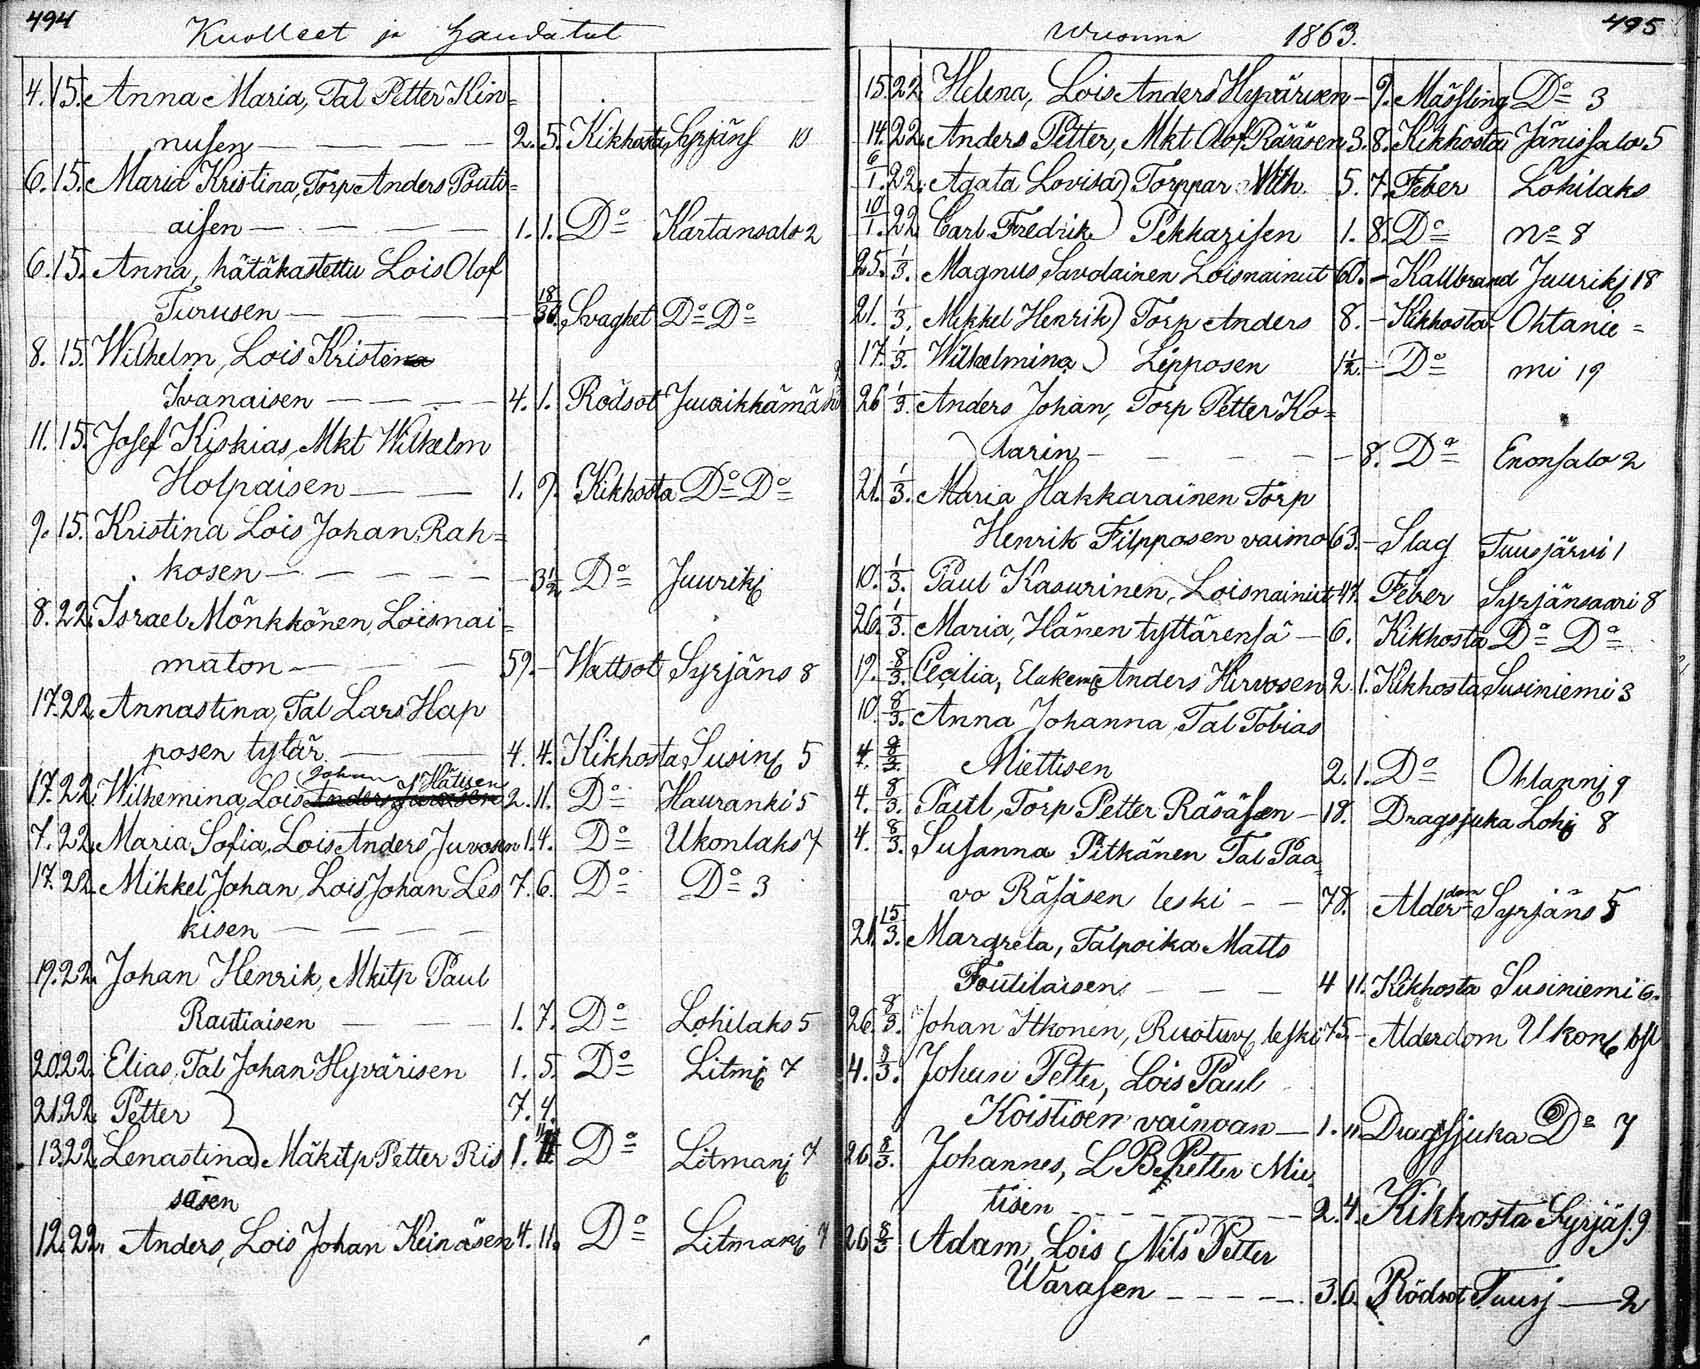 494
Kuolleet ja Haudatut
4. 15. Anna Maria, Tal Petter Kin=
nusen — 2. 5. Kikhosta Syrjäns 10
6. 15. Maria Kristina, Torp Anders Pouti=
aisen — 1. 1. Do Kartansalo 2
6. 15. Anna, hätäkastettu Lois Olof
Turusen — 18/30 Svaghet Do Do
8. 15. Wilhelm, Lois Kristina
Ivanaisen — 4. 1. Rödsot Juurikkamä
11. 15. Josef Kiskias, Mkt Wilhelm
Holpaisen — 1. 9. Kikhosta Do Do
9. 15. Kristina Lois Johan Rah=
kosen — 3 1/2 Do Juurikj
8. 22. Israel Mönkkönen, Loisnai=
maton — 59. - Wattsot Syrjäns 8
17. 22. Annastina, Tal Lars Hap
posen tytär — 4. 4. Kikhosta Susinj 5
Johan Hätisen
17. 22. Wilhemina, Lois Anders Juvosen 2. 11. Do Hauranki 5
7. 22. Maria Sofia, Lois Anders Juvosen 1. 4. Do Ukonlaks 7
17. 22. Mikkel Johan, Lois Johan Les 7. 6. Do Do 3
kisen —
19. 22. Johan Henrik, Mkitp Paul
Rautiaisen — 1. 7. Do Lohilaks 5
20. 22. Elias, Tal Johan Hyvärisen 1. 5. Do Litmj 7
21. 22. Petter } 7. 4.
13. 22. Lenastina) Mäkitp Petter Ris 1. 11 Do Litmanj 7
säsen
12. 22. Anders, Lois Johan Keinäsen 4. 11. Do Litmanj 7
495
Wuonna 1863.
15. 22 Helena, Lois Anders Hyvärisen - 9. Mässling Do 3
14. 22. Anders Petter, Mkt Olof Räsäsen 3. 8. Kikhosta Jänissalo 5
6/1. 22. Agata Lovisa) Torppar Wilh. 5. 7. Feber Lohilaks
10/1. 22. Carl Fredrik) Pekkarisen 1. 8. Do No 8
25. 1/3. Magnus Savolainen Loisnainut 60. - Kallbrand Juurikj 18
21. 1/3. Mikkel Henrik) Torp Anders 8. - Kikhosta Ohtanie=
17. 1/3. Wilhelmina) Lipposen 1 1/2. - Do mi 19
26 1/3. Anders Johan, Torp Petter Ko=
larin - 8. Do Enonsalo 2
21. 1/3. Maria Hakkarainen Torp
Henrik Filpposen vaimo 63. - Slag Tuusjärvi 1
10. 1/3. Paul Kasurinen, Loisnainut 47. Feber Syrjänsaari 8
26. 1/3. Maria, Hänen tyttärensä - 6. Kikhosta Do Do
19. 8/3. Cecilia, Elakenj Anders Hirvosen 2. 1. Kikhosta Susiniemi 3
10. 8/3. Anna Johanna, Tal Tobias
4. 8/3. Miettisen 2. 1. Do Ohtannj 9
4. 8/3. Paul, Torp Petter Räsäsen - 18. Dragsjuka Lohj 8
4. 8/3. Susanna Pitkänen Tal Paa
vo Räsäsen leski - - 78. Alderdom Syrjäns 5
21. 15/3. Margreta, Talpoika Matts
Poutilaisen - 4 11. Kikhosta Susiniemi 6.
26. 8/3. Johan Itkonen, Ruotuv leski 75 - Alderdom Ukon
4. 8/3. Johan Petter, Lois Paul
Koistisen vainaan - 1. 11. Dragsjuka Do 7
26. 8/3. Johannes, L B Petter Miet
tisen - 2. 4. Kikhosta Syrjäs. 9
26 8/3 Adam, Lois Nils Petter
Warasen - 3. 6. Rödsot Tuusj — 2